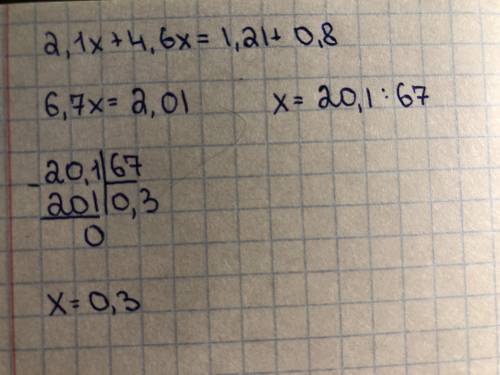 2,1x+4,6x=1,21+0,8
6,7x=2,01 x=20,1:67
-20,1|67
201|0,3
0
x=0,3